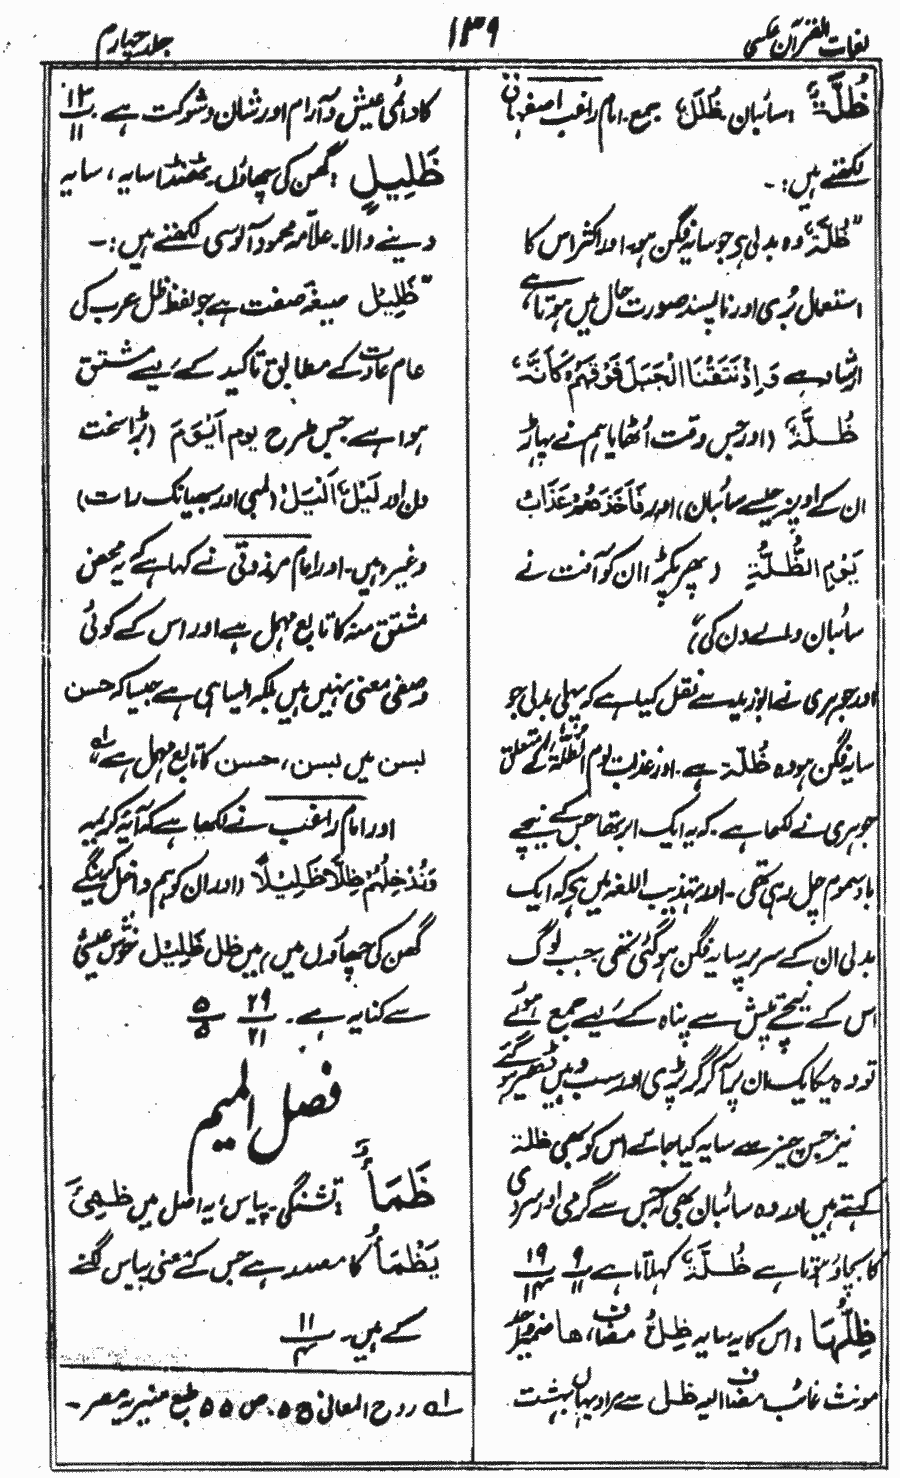 لغات القرآن عکسی
۱۳۹
جلد چہارم
ظُلَّۃٌ : سائبان ظُلَلٌ جمع۔ امام راغب اصفہانی
لکھتے ہیں :۔
"ظُلَّۃٌ، وہ بدلی ہے جو سایہ فگن ہو۔ اور اکثر اس کا
استعمال بُری اور ناپسند صورت حال میں ہوتا ہے
ارشاد ہے وَاِذْ نَتَقْنَا الْجَبَلَ فَوْقَھُمْ کَاَنَّہٗ
ظُلَّۃٌ (اور جس وقت اُٹھایا ہم نے پہاڑ
ان کے اوپر جیسے سائبان) اور فَاَخَذَھُمْ عَذَابُ
یَوْمِ الظُّلَّۃِ (پھر پکڑا ان کو آفت نے
سائبان والے دن کی)
اور جوہری نے ابوزید سے نقل کیا ہے کہ پہلی بدلی جو
سایہ فگن ہو وہ ظُلَّۃ ہے۔ اور عذاب یوم الظُّلَّۃ کے متعلق
جوہری نے لکھا ہے۔ کہ یہ ایک ابر تھا جس کے نیچے
باد سموم چل رہی تھی۔ اور تہذیب اللغہ میں ہے کہ ایک
بدلی ان کے سر پر سایہ فگن ہو گئی تھی جب لوگ
اس کے نیچے تپش سے پناہ کے لیے جمع ہوئے
تو وہ یکایک ان پر آ کر گر پڑی اور سب وہیں ڈھیر ہو گئے
نیز جس چیز سے سایہ کیا جائے اس کو بھی ظلۃ
کہتے ہیں اور وہ سائبان بھی کہ جس سے گرمی اور سردی
کا بچاؤ ہوتا ہے ظُلَّۃٌ کہلاتا ہے ۹/۱۱ ۱۹/۱۴
ظِلُّھَا : اس کا یہ سایہ ظِلُّ مضاف، ھا ضمیر واحد
مونث غائب مضاف الیہ ظل سے مراد یہاں بہشت
کا دائمی عیش و آرام اور شان و شوکت ہے ۱۳/۱۱
ظَلِیلٍ : گھن کی چھاؤں۔ ٹھنڈا سایہ، سایہ
دینے والا۔ علامہ محمود آلوسی لکھتے ہیں :۔
"ظَلِیْل صیغۂ صفت ہے جو لفظ ظل عرب کی
عام عادت کے مطابق تاکید کے لیے مشتق
ہوا ہے جس طرح یوم اَیْوَمَ (بڑا سخت
دن اور لَیْلٌ اَلْیَلُ (لمبی اور بھیانک رات)
وغیرہ ہیں۔ اور امام مرزوقی نے کہا ہے کہ یہ محض
مشتق منہ کا تابع مہمل ہے اور اس کے کوئی
وصفی معنی نہیں ہیں بلکہ ایسا ہی ہے جیسا کہ حسن
بسن میں بسن، حسن کا تابع مہمل ہے" ۱ھ
اور امام راغب نے لکھا ہے کہ آیۂ کریمہ
وَنُدْخِلُھُمْ ظِلًّا ظَلِیْلًا (اور ان کو ہم داخل کرینگے
گھن کی چھاؤں میں) میں ظل ظَلِیْل خوش عیشی
سے کنایہ ہے۔ ۲۹/۲۱ ۵/۵
فصل المیم
ظَمَأٌ : تشنگی۔ پیاس، یہ اصل میں ظَمِئَ
یَظْمَأُ کا مصدر ہے جس کے معنی پیاس لگنے
کے ہیں۔ ۱۱/۴
۱ھ روح المعانی ۵۵ ص ۵۵ طبع منیریہ مصر۔